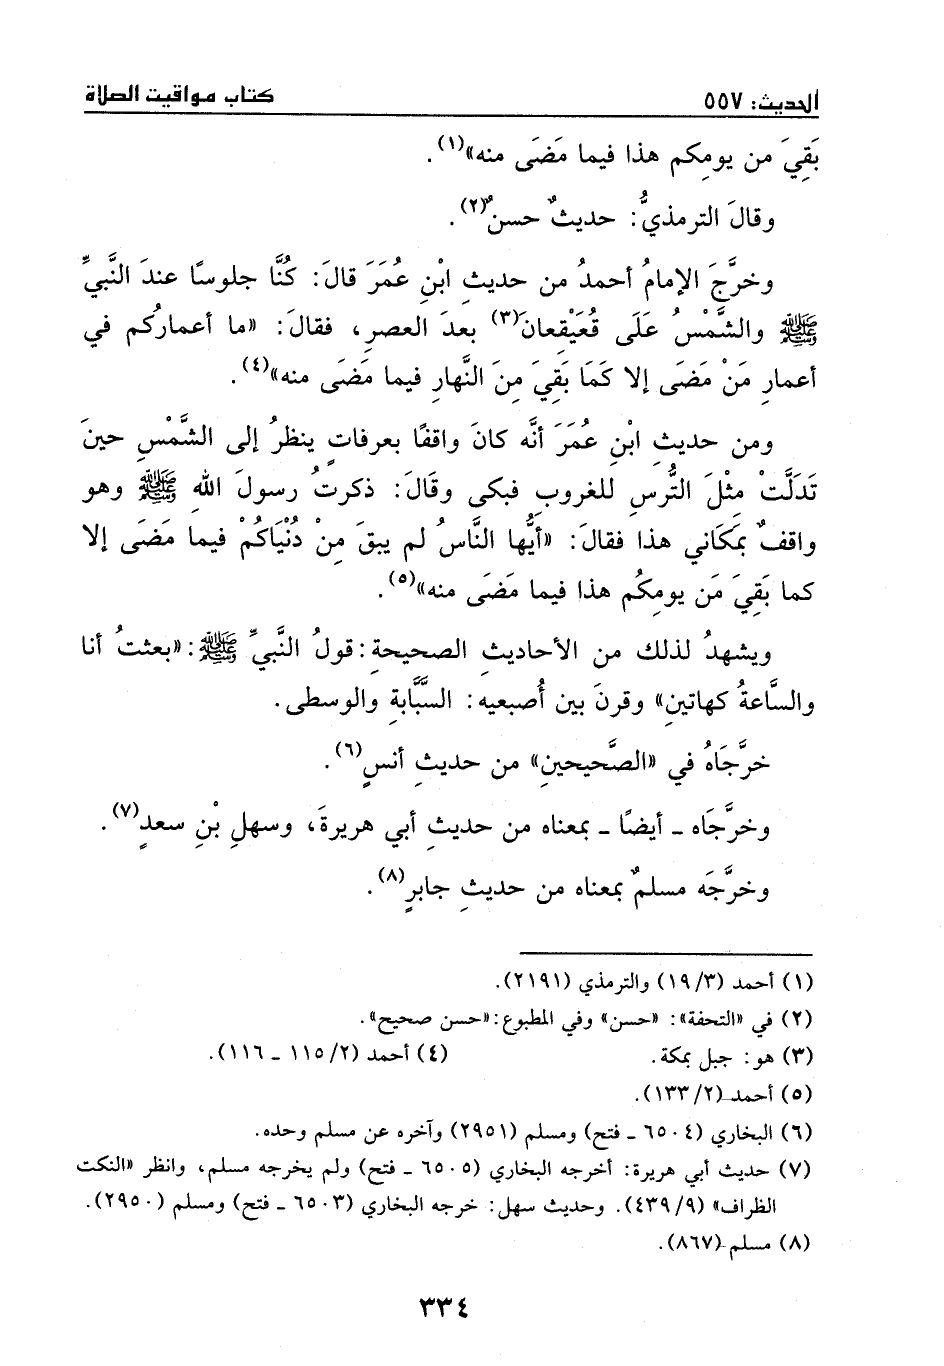 الحديث: ٥٥٧ كتاب مواقيت الصلاة
بَقِيَ من يومِكم هذا فيما مَضَى منه»(١).
وقالَ الترمذيُّ: حديثٌ حسنٌ(٢).
وخرَّجَ الإمامُ أحمدُ من حديثِ ابْنِ عُمَرَ قالَ: كُنَّا جلوسًا عندَ النَّبيِّ
ﷺ والشَّمْسُ عَلَى قُعَيْقِعانَ(٣) بعدَ العصرِ، فقالَ: «ما أعمارُكم في
أعمارِ مَنْ مَضَى إلا كَمَا بَقِيَ مِنَ النَّهارِ فيما مَضَى منه»(٤).
ومن حديثِ ابْنِ عُمَرَ أنَّه كانَ واقفًا بعرفاتٍ ينظرُ إلى الشَّمْسِ حينَ
تَدَلَّتْ مِثْلَ التُّرسِ للغروبِ فبكى وقالَ: ذكرتُ رسولَ اللهِ ﷺ وهو
واقفٌ بمَكَاني هذا فقالَ: «أيُّها النَّاسُ لم يبقَ مِنْ دُنْيَاكُمْ فيما مَضَى إلا
كما بَقِيَ مَن يومِكُم هذا فيما مَضَى منه»(٥).
ويشهدُ لذلك من الأحاديثِ الصحيحةِ: قولُ النَّبيِّ ﷺ: «بعثتُ أنا
والسَّاعةُ كهاتينِ» وقرنَ بين أُصبعيه: السَّبَّابةِ والوسطى.
خرَّجَاهُ في «الصَّحيحينِ» من حديثِ أنسٍ(٦).
وخرَّجَاه ـ أيضًا ـ بمعناه من حديثِ أبي هريرةَ، وسهلِ بْنِ سعدٍ(٧).
وخرَّجَه مسلمٌ بمعناه من حديثِ جابرٍ(٨).
(١) أحمد (٣/١٩) والترمذي (٢١٩١).
(٢) في «التحفة»: «حسن» وفي المطبوع: «حسن صحيح».
(٣) هو: جبل بمكة. (٤) أحمد (٢/١١٥ ـ ١١٦).
(٥) أحمد (٢/١٣٣).
(٦) البخاري (٦٥٠٤ ـ فتح) ومسلم (٢٩٥١) وآخره عن مسلم وحده.
(٧) حديث أبي هريرة: أخرجه البخاري (٦٥٠٥ ـ فتح) ولم يخرجه مسلم، وانظر «النكت
الظراف» (٩/٤٣٩). وحديث سهل: خرجه البخاري (٦٥٠٣ ـ فتح) ومسلم (٢٩٥٠).
(٨) مسلم (٨٦٧).
٣٣٤